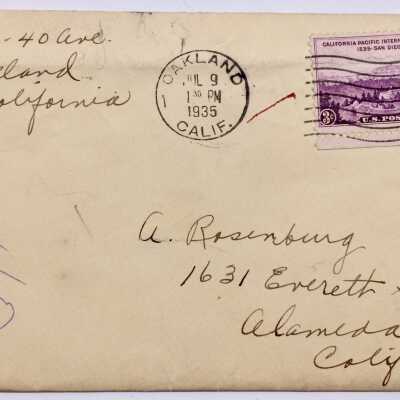 - 40 Ave.
land
California
OAKLAND
JUL 9
1 30 PM
1
1935
CALIF.
CALIFORNIA PACIFIC INTERN
1935-SAN DIEG
3¢
U.S. POS
A. Rosenburg
1631 Everett
Alameda
Calif